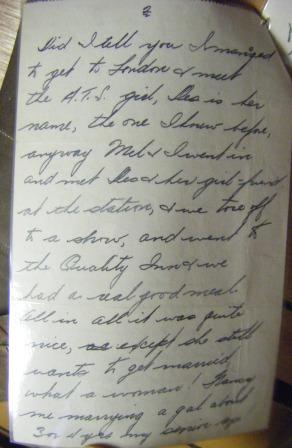 2
Did I tell you I managed
to get to London & meet
the A.T.S. girl, Des is her
name, the one I knew before,
anyway Mel & I went in
and met Des & her girl-friend
at the station, & we tore off
to a show, and went to
the Quality Inn & we
had a real good meal
all in all it was quite
nice, except she still
wants to get married
what a woman! Fancy
me marrying a gal about
3 or 4 yrs my senior